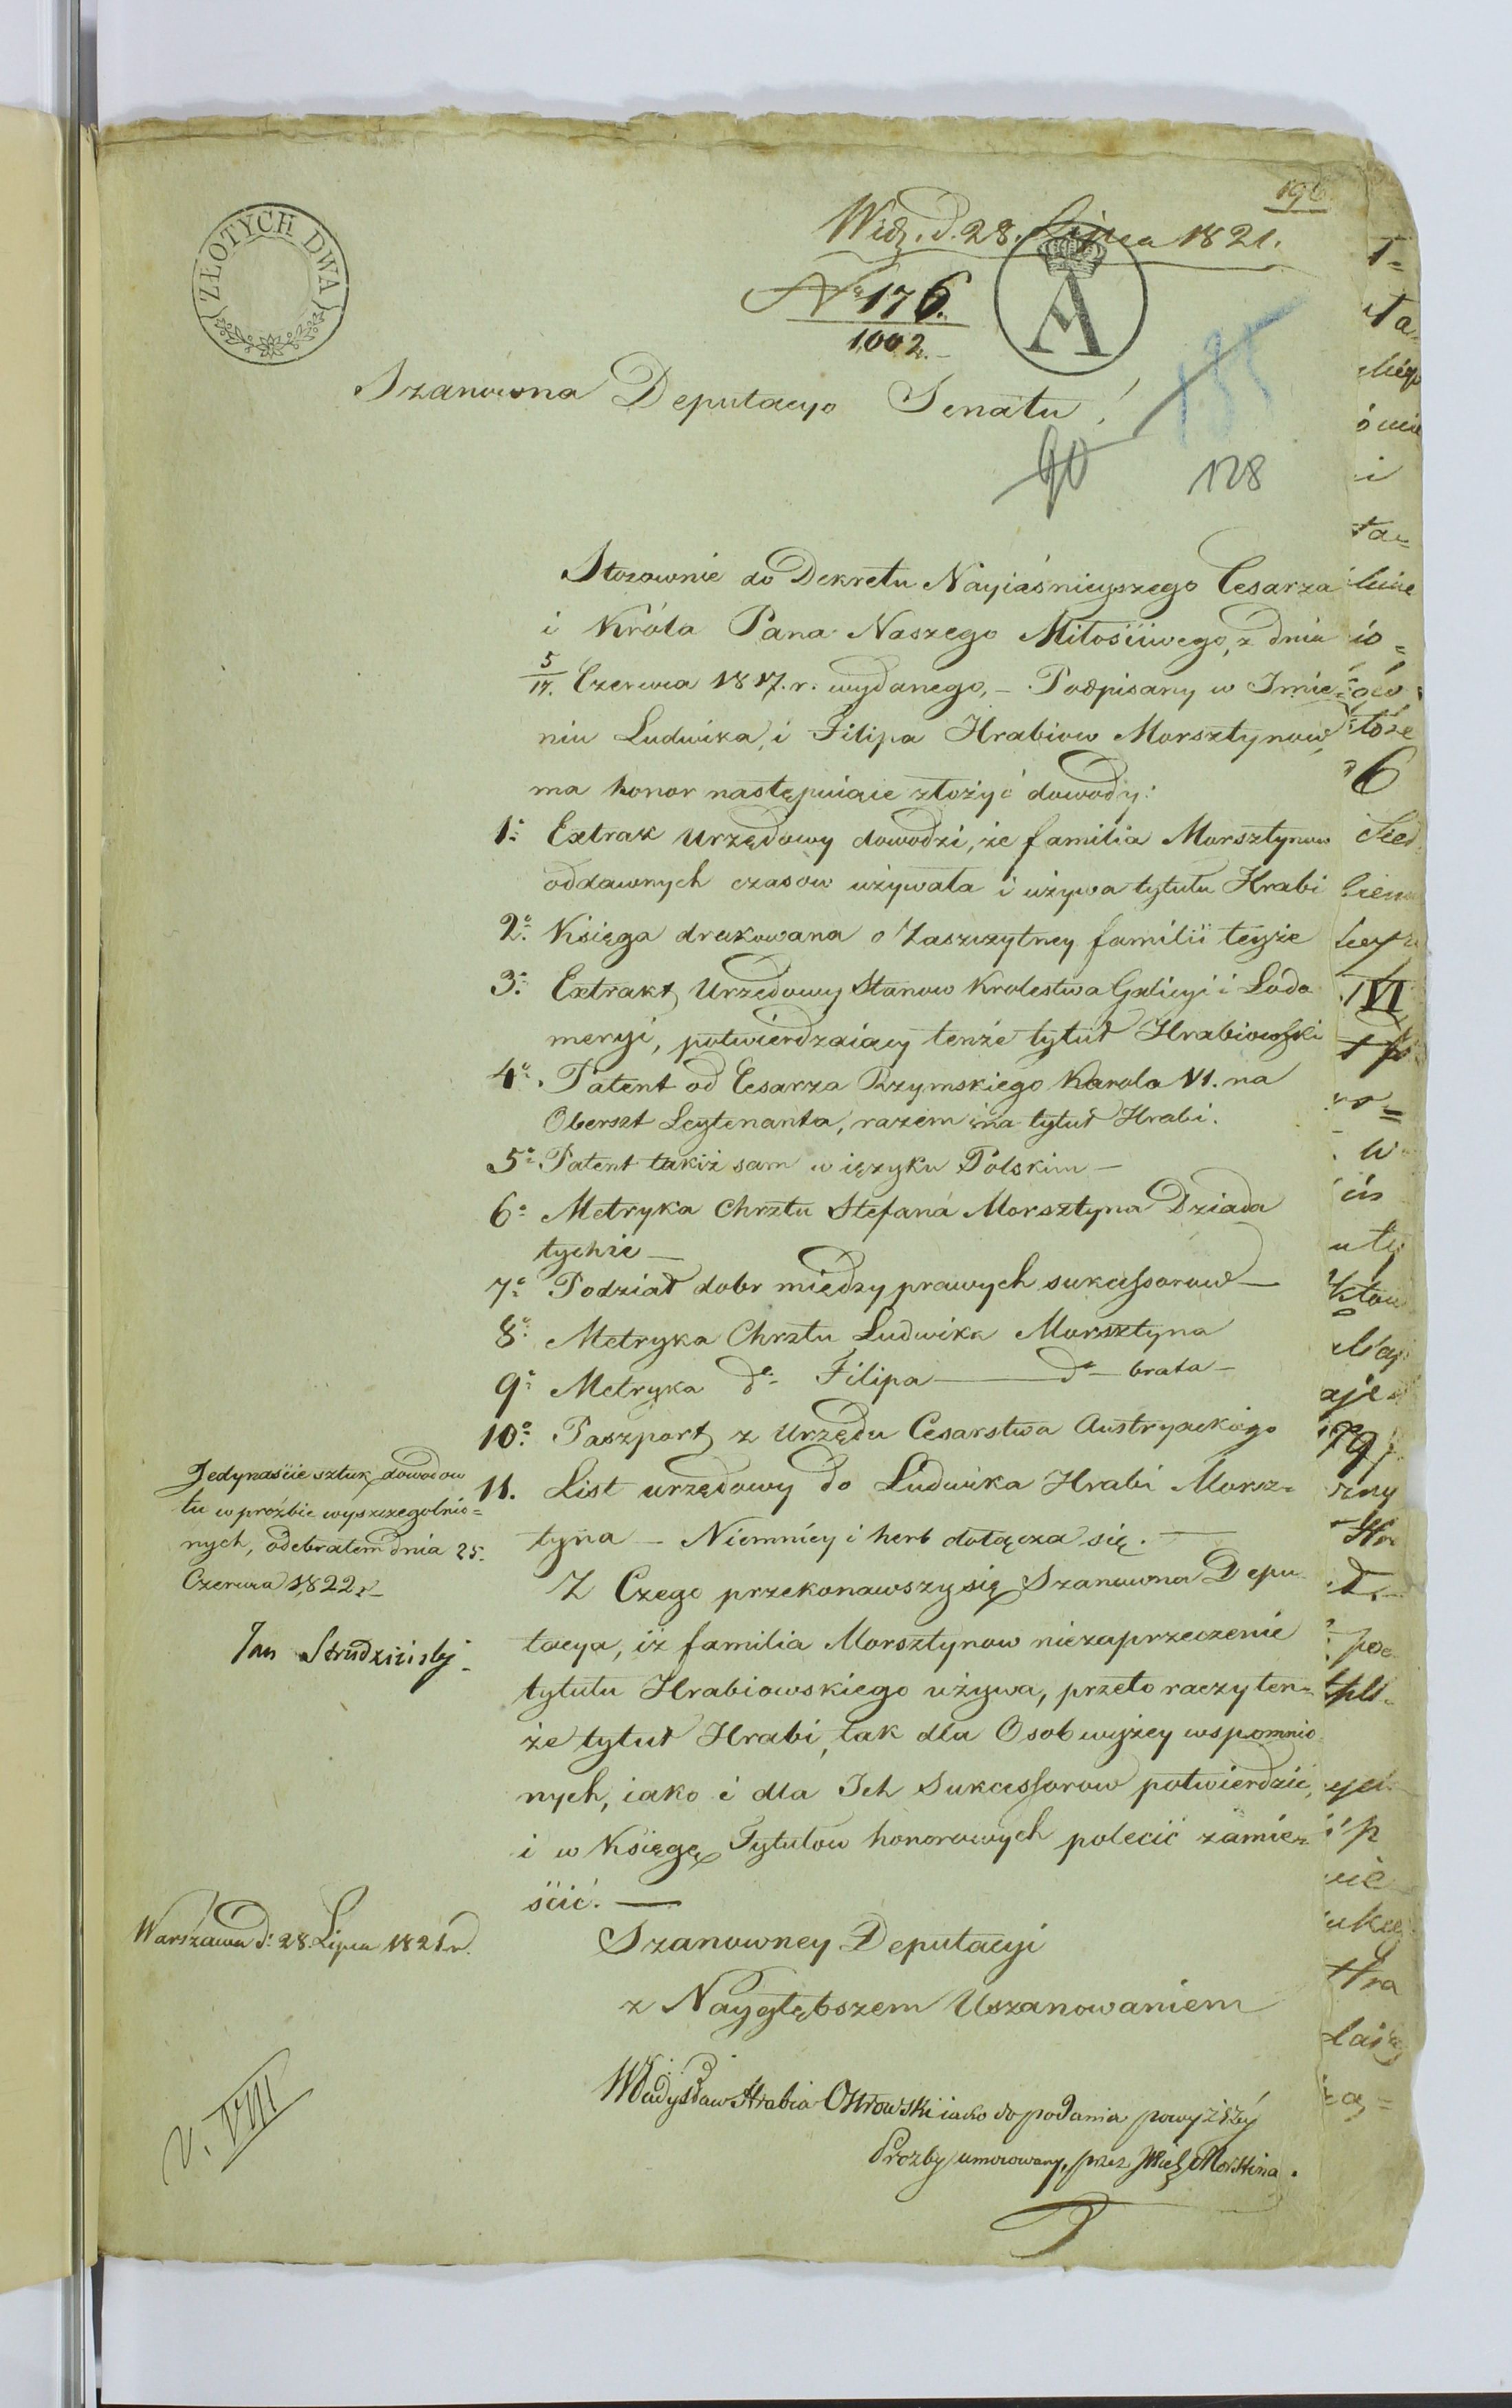 196
Widz. d. 28. Lipca 1821.
ZŁOTYCH DWA
A
Nº 176.
1002.
Szanowna Deputacyo Senatu!
90
128
Stosownie do Dekretu Nayiaśnieyszego Cesarza
i Króla Pana Naszego Miłościwego, z dnia
5/17. Czerwca 1817. r. wydanego, – Podpisany w Imie=
niu Ludwika, i Filipa Hrabiow Morsztynow,
ma honor następuiące złożyć dowody:
1º Extrak Urzędowy dowodzi, że familia Morsztynow
oddawnych czasow używała i używa tytułu Hrabi
2º Księga drukowana o Zaszczytney familii teyże
3º Extrakt Urzędowy Stanow Krolestwa Galicyi i Lodo
meryi, potwierdzaiący tenże tytuł Hrabiowski
4º. Patent od Cesarza Rzymskiego Karola VI. na
Oberszt Leytenanta, razem i na tytuł Hrabi.
5º Patent takiż sam w ięzyku Polskim –
6º Metryka Chrztu Stefana Morsztyna Dziada
tychże –
7º Podział dobr między prawych sukcessorow –
8º Metryka Chrztu Ludwika Morsztyna
9º Metryka dº Filipa — dº – brata –
10º Paszport z Urzędu Cesarstwa Austryackiego
11. List urzędowy do Ludwika Hrabi Morsz=
tyna – Niemniey i herb dołącza się. —
Z Czego przekonawszy się Szanowna Depu
tacya, iż familia Morsztynow niezaprzeczenie
tytułu Hrabiowskiego używa, przeto raczy ten=
że tytuł Hrabi, tak dla Osob wyżey wspomnio
nych, iako i dla Ich Sukcessorow potwierdzić,
i w Księgę Tytułow honorowych polecić zamie=
ścić. —
Jedynaście sztuk dowodow
tu w proźbie wyszczegolnio=
nych, odebrałem dnia 25.
Czerwca 1822 r –
Jan
Warszawa d. 28. Lipca 1821 r.
Szanowney Deputacyi
z Naygłębszem Uszanowaniem
Władysław Hrabia Ostrowski iako do podania powyższey
Prozby umocowany, przez Morstina.
V. VIII